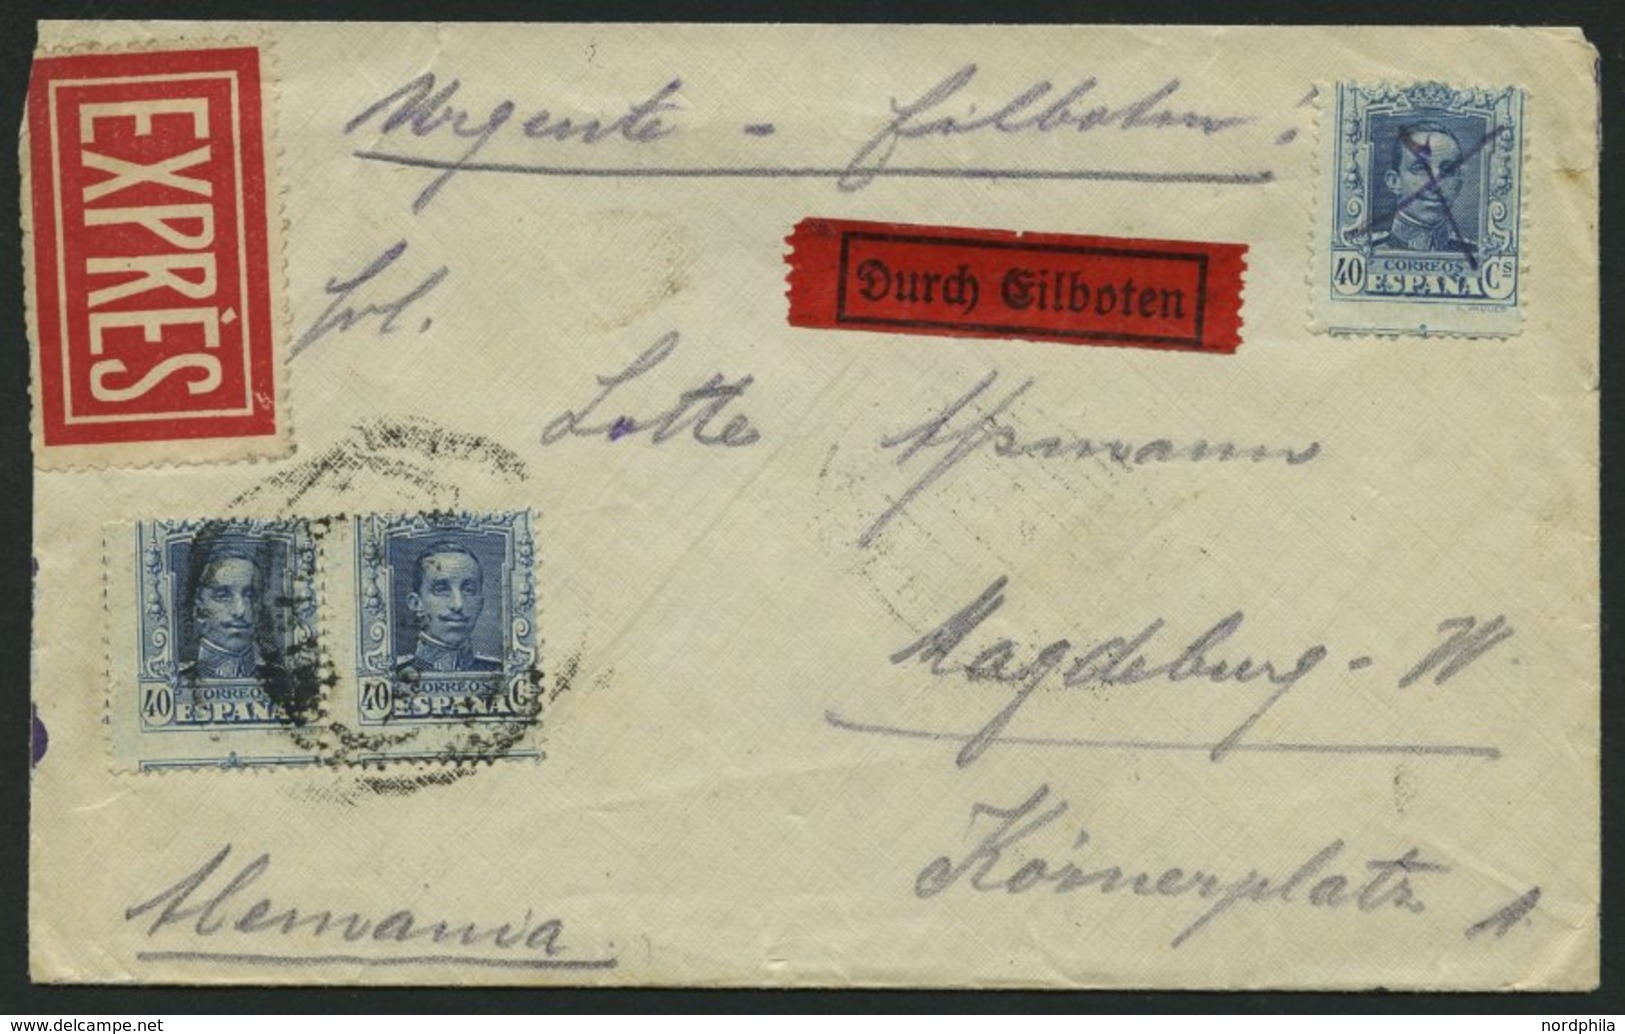 EXPRÈS
Urgente - Eilboten!
40 CORREOS Cs
ESPAÑA
Durch Eilboten
Frl.
Lotte
40 CORREOS
ESPAÑA
40 CORREOS Cs
ESPAÑA
Magdeburg-W.
Körnerplatz 1.
Alemania.
nordphila